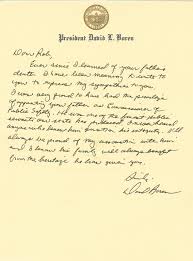 President David L. Boren
Dear Rob,
Ever since I learned of your father's
death I have been meaning to write to
you to express my sympathies to you
I was very proud to have had the privilege
of appointing your father as Commissioner of
Public Safety. He was one of the finest public
servants our state has produced
anyone who knew him his integrity. I'll
always be proud of my association with him
and I know his family will always benefit
from the heritage he has given you.
Sincerely,
David Boren